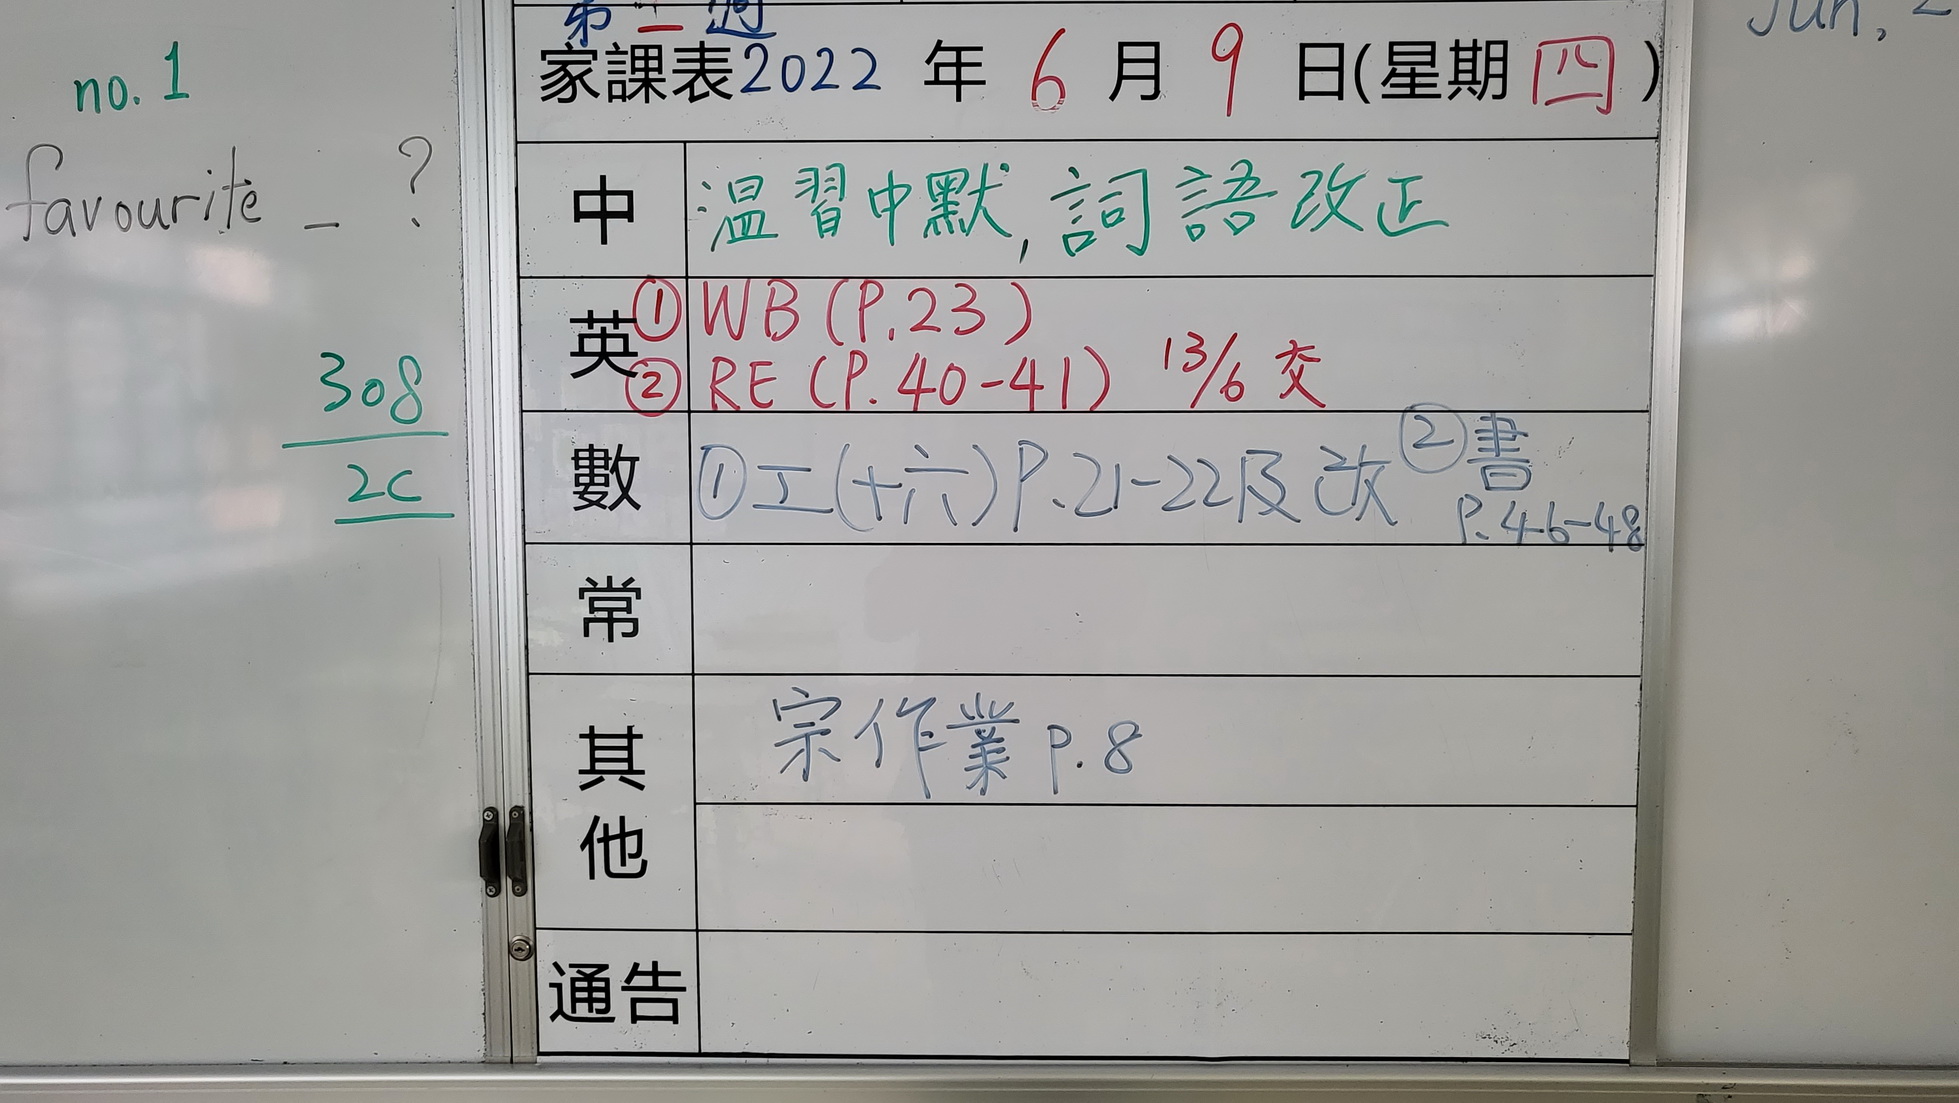 no. 1
favourite _ ?
308
2C
第二週
家課表2022 年 6 月 9 日(星期 四 )
中 溫習中默,詞語改正
英 ① WB (P.23)
② RE (P.40-41) 13/6 交
數 ①工(十六)P.21-22及改 ②書
P.46-48
常
其他 宗作業 P.8
通告
Jun,